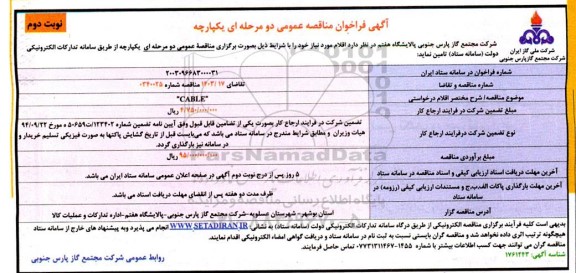 نوبت دوم
آگهی فراخوان مناقصه عمومی دو مرحله ای یکپارچه
شرکت ملی گاز ایران
شرکت مجتمع گاز پارس جنوبی
شرکت مجتمع گاز پارس جنوبی پالایشگاه هفتم در نظر دارد اقلام مورد نیاز خود را با شرایط ذیل بصورت برگزاری مناقصه عمومی دو مرحله ای یکپارچه از طریق سامانه تدارکات الکترونیکی
دولت (سامانه ستاد) تامین نماید:
شماره فراخوان در سامانه ستاد ایران
۲۰۰۳۰۹۶۶۸۳۰۰۰۰۳۱
شماره مناقصه و تقاضا
تقاضای ۱۷ /۱۴۰۳ مناقصه شماره ۰۳۴۰۰۲۵
موضوع مناقصه/ شرح مختصر اقلام درخواستی
"CABLE"
مبلغ تضمین در فرآیند ارجاع کار
۴/۷۵۰/۰۰۰/۰۰۰ ریال
نوع تضمین شرکت در فرآیند ارجاع کار
تضمین شرکت در فرایند ارجاع کار بصورت یکی از تضامین قابل قبول وفق آیین نامه تضمین شماره ۱۲۳۴۰۲/ت۵۰۶۵۹ ه مورخ ۹۴/۰۹/۲۲
هیات وزیران و مطابق شرایط مندرج در سامانه ستاد می باشد که می‌بایست قبل از تاریخ گشایش پاکتها به صورت فیزیکی تسلیم خریدار و
در سامانه نیز بارگذاری گردد.
مبلغ برآوردی مناقصه
۹۵/۰۰۰/۰۰۰/۰۰۰ ریال
آخرین مهلت دریافت اسناد ارزیابی کیفی و اسناد مناقصه در سامانه ستاد
۵ روز پس از درج نوبت دوم آگهی در صفحه اعلان عمومی سامانه ستاد ایران می باشد.
آخرین مهلت بارگذاری پاکات الف،ب،ج و مستندات ارزیابی کیفی (رزومه) در
سامانه ستاد
ظرف مدت دو هفته پس از انقضای مهلت دریافت اسناد می باشد.
آدرس مناقصه گزار
استان بوشهر- شهرستان عسلویه-شرکت مجتمع گاز پارس جنوبی -پالایشگاه هفتم -اداره تدارکات و عملیات کالا
بدیهی ست کلیه فرآیند برگزاری مناقصه الکترونیکی از طریق درگاه سامانه تدارکات الکترونیکی دولت (سامانه ستاد) به نشانی (WWW.SETADIRAN.IR) انجام می پذیرد وبه پیشنهاد های خارج از سامانه ستاد
هیچگونه ترتیب اثری داده نخواهد شد و مناقصه گران بایستی نسبت به ثبت نام در سامانه ستاد و دریافت گواهی امضاء الکترونیکی اقدام نمایند.
مناقصه گران می توانند جهت کسب اطلاعات بیشتر با شماره ۱۴۵۵-۰۷۷۳۱۳۱۱۴۶۷ تماس حاصل فرمایند.
شناسه آگهی: ۱۷۶۱۲۴۳
روابط عمومی شرکت مجتمع گاز پارس جنوبی